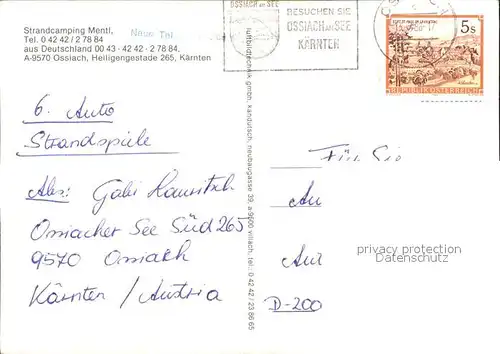 Strandcamping Mentl,
Tel. 0 42 42 / 2 78 84
aus Deutschland 00 43 - 42 42 - 2 78 84.
A-9570 Ossiach, Heiligengestade 265, Kärnten
Neue
OSSIACH am SEE
BESUCHEN SIE
OSSIACH am SEE
KÄRNTEN
5 S
REPUBLIK ÖSTERREICH
6. Auto
Strandspiele
Abs: Gabi
Ossiacher See Süd 265
9570 Ossiach
Kärnten / Austria
luftbildtechnik gmbh. kanduтsch, neubaugasse 39, a 9500 villach, tel.: 0 42 42 / 23 86 65
Für Sie
An
D-200
privacy protection
Datenschutz